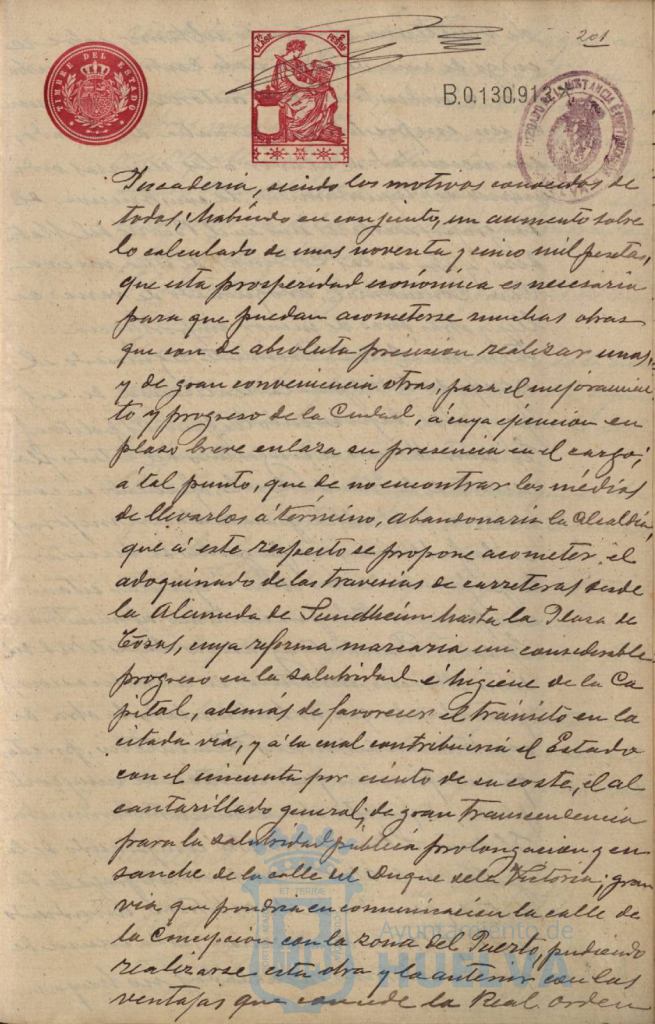 201
TIMBRE DEL ESTADO
7ª CLASE PESETAS
B.0.130.91
Tucaderia, siendo los motivos conocidos de
todos; habiendo en conjunto, un aumento sobre
lo calculado de unas noventa y cinco mil pesetas,
que esta prosperidad económica es necesaria
para que puedan acometerse muchas obras
que son de absoluta precision realizar unas,
y de gran conveniencia otras, para el mejoramien
to y progreso de la Ciudad, á cuya ejecucion en
plazo breve enlaza su presencia en el cargo;
á tal punto, que de no encontrar los médios
de llevarlos á término, abandonaria la Alcaldia,
que á este respecto se propone acometer el
adoquinado de las travesias de carreteras desde
la Alameda de Sundheim hasta la Plaza de
Toros, cuya reforma marcaria un considerable
progreso en la salubridad é higiene de la Ca
pital, además de favorecer el tránsito en la
citada via, y á la cual contribuirá el Estado
con el cincuenta por ciento de su coste, el al
cantarillado general; de gran transcendencia
para la salubridad pública prolongacion y en
sanche de la calle del Duque de la Victoria; gran
via que pondria en comunicacion la calle de
la Concepcion con la zona del Puerto, pudiendo
realizarse esta obra y la anterior con las
ventajas que concede la Real orden
Ayuntamiento de
HUELVA